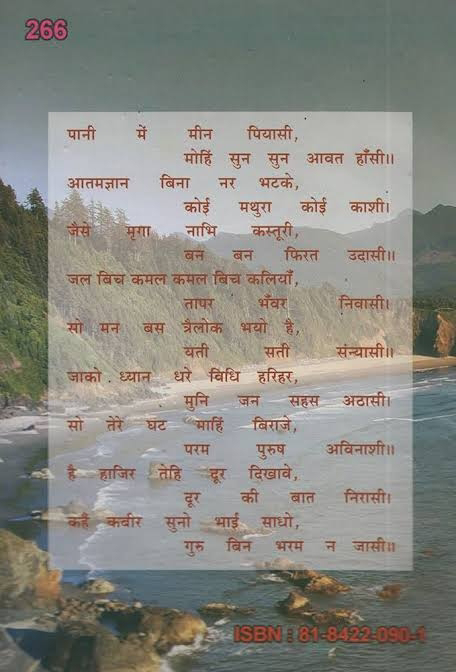 266
पानी में मीन पियासी,
मोहिं सुन सुन आवत हाँसी॥
आतमज्ञान बिना नर भटके,
कोई मथुरा कोई काशी।
जैसे मृगा नाभि कस्तूरी,
बन बन फिरत उदासी॥
जल बिच कमल कमल बिच कलियाँ,
तापर भँवर निवासी।
सो मन बस त्रैलोक भयो है,
यती सती संन्यासी॥
जाको ध्यान धरे विधि हरिहर,
मुनि जन सहस अठासी।
सो तेरे घट माहिं बिराजे,
परम पुरुष अविनाशी॥
है हाजिर तेहि दूर दिखावे,
दूर की बात निरासी।
कहैं कबीर सुनो भाई साधो,
गुरु बिन भरम न जासी॥
ISBN : 81-8422-090-1